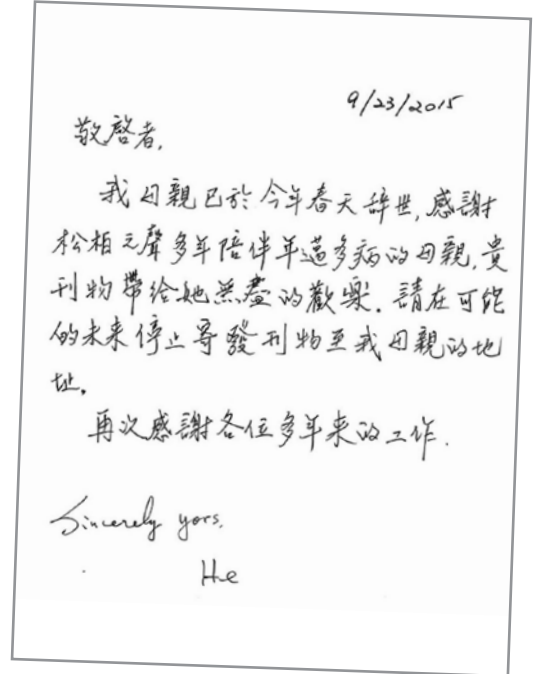 9/23/2015
敬啓者,
我母親已於今年春天辞世,感謝
松柏之聲多年陪伴年邁多病的母親,貴
刊物帶给她無盡的歡樂. 請在可能
的未来停止寄發刊物至我母親的地
址.
再次感謝各位多年来的工作.
Sincerely yors,
He